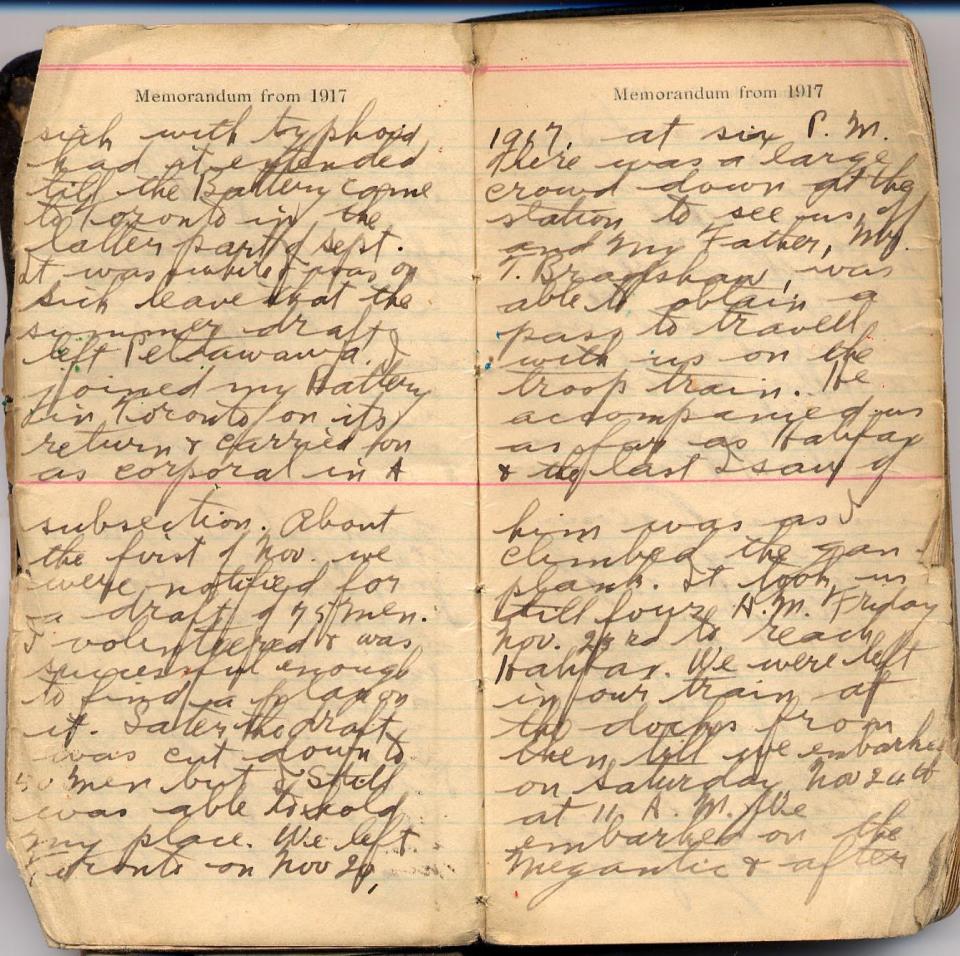 Memorandum from 1917
sick with typhoid
had it extended
till the Battery came
to Toronto in the
latter part of Sept.
It was while I was on
sick leave that the
summer draft
left Petawawa. I
joined my Battery
in Toronto on its
return & carried on
as corporal in A
subsection. About
the first of Nov. we
were notified for
a draft of 75 men.
I volunteered & was
successful enough
to find a place on
it. Later the draft
was cut down to
50 men but I still
was able to hold
my place. We left
Toronto on Nov 20,
Memorandum from 1917
1917, at six P. M.
There was a large
crowd down at the
station to see us off
and my Father, Mr.
T. Bradshaw, was
able to obtain a
pass to travell
with us on the
troop train. He
accompanied us
as far as Halifax
& the last I saw of
him was as I
climbed the gan
plank. It took us
till four A.M. Friday
Nov. 23rd to reach
Halifax. We were left
in our train at
the docks from
then till we embarked
on Saturday Nov 24th
at 11 A. M. We
embarked on the
Megantic & after